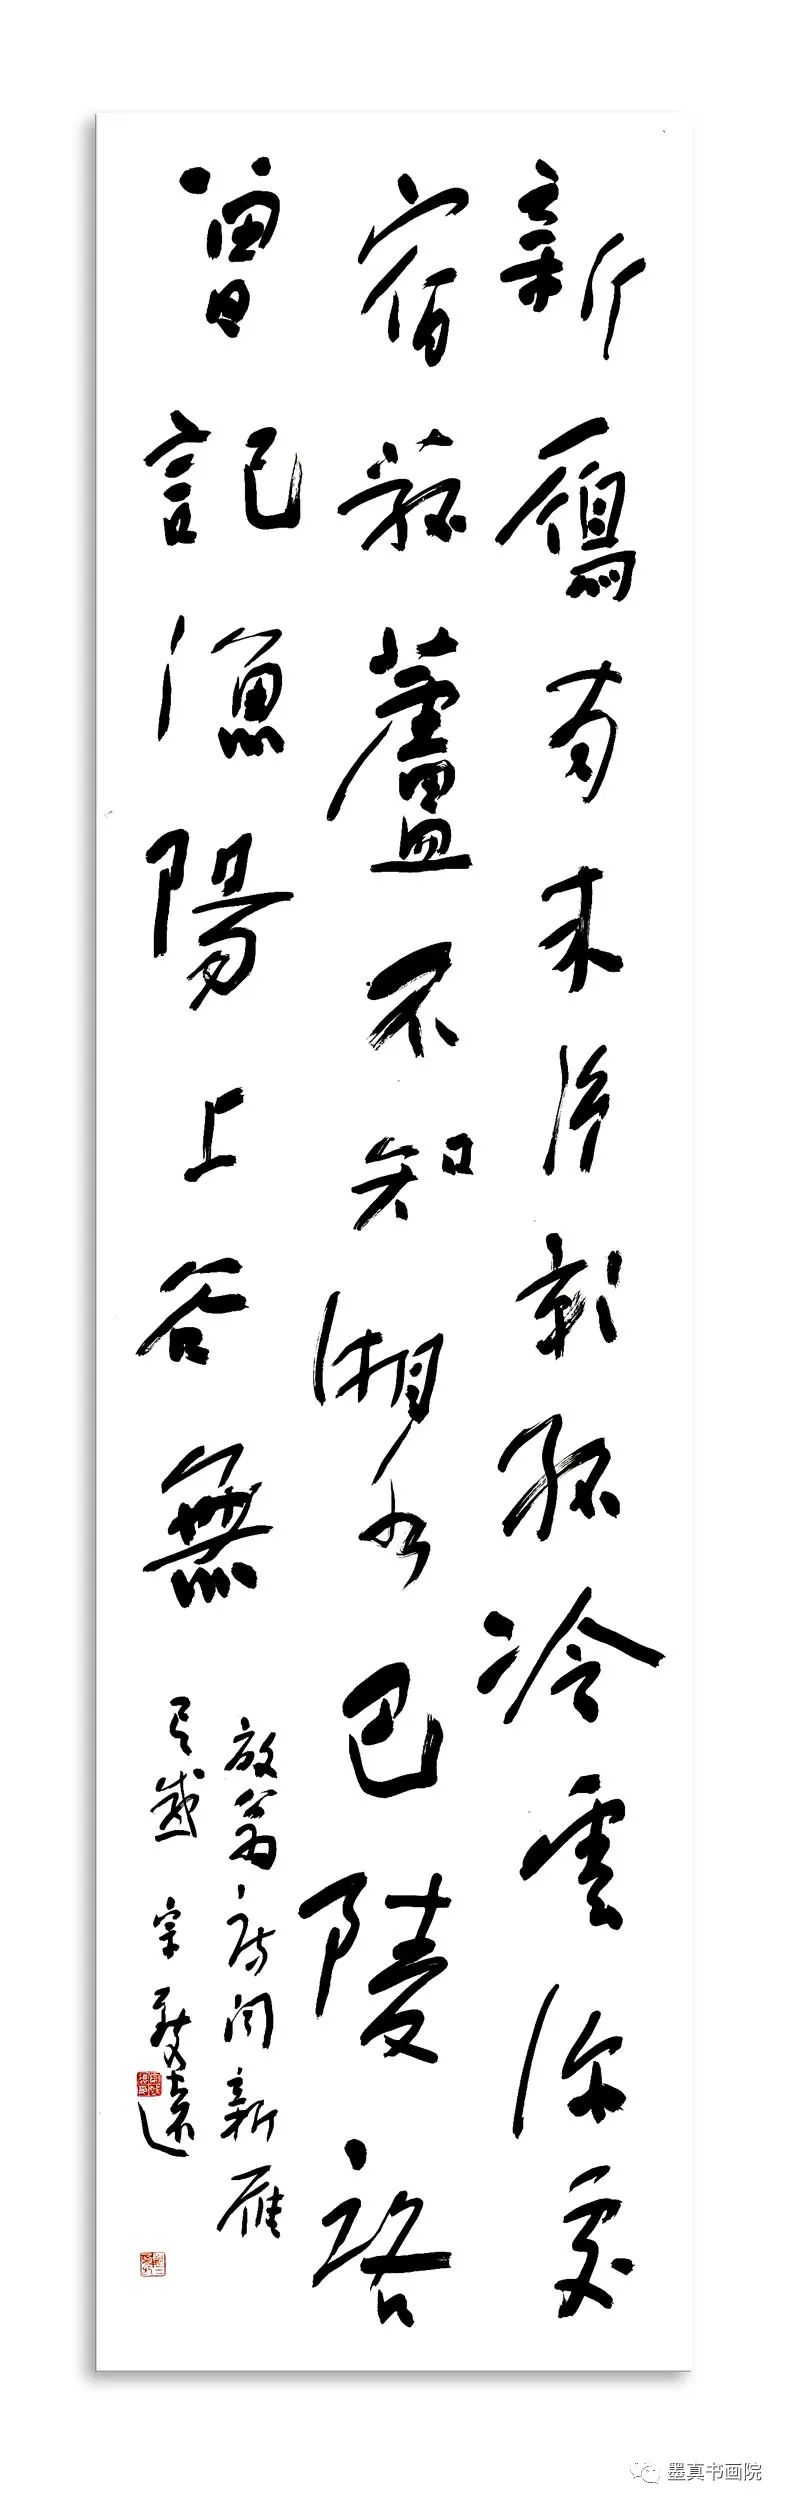 新鴈南來片影孤冷雲深處
宿菰蘆不知湘水巴陵路
曾記漁陽上谷無
放翁詩聞新雁
有感 宗
墨真书画院